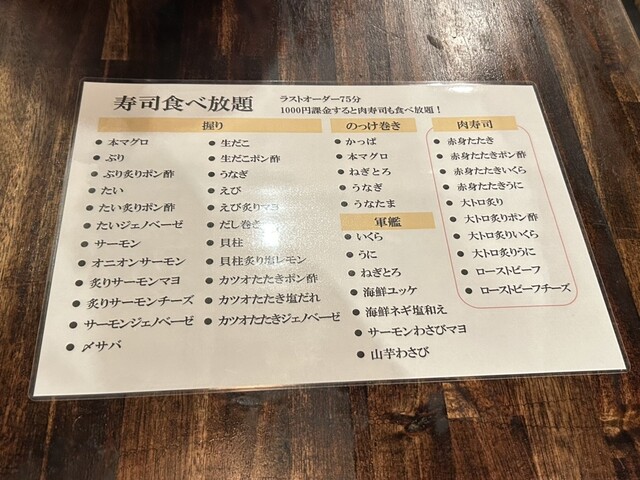 寿司食べ放題
ラストオーダー75分
1000円課金すると肉寿司も食べ放題！
握り
● 本マグロ
● ぶり
● ぶり炙りポン酢
● たい
● たい炙りポン酢
● たいジェノベーゼ
● サーモン
● オニオンサーモン
● 炙りサーモンマヨ
● 炙りサーモンチーズ
● サーモンジェノベーゼ
● 〆サバ
● 生だこ
● 生だこポン酢
● うなぎ
● えび
● えび炙りマヨ
● だし巻き
● 貝柱
● 貝柱炙り塩レモン
● カツオたたきポン酢
● カツオたたき塩だれ
● カツオたたきジェノベーゼ
のっけ巻き
● かっぱ
● 本マグロ
● ねぎとろ
● うなぎ
● うなたま
軍艦
● いくら
● うに
● ねぎとろ
● 海鮮ユッケ
● 海鮮ネギ塩和え
● サーモンわさびマヨ
● 山芋わさび
肉寿司
● 赤身たたき
● 赤身たたきポン酢
● 赤身たたきいくら
● 赤身たたきうに
● 大トロ炙り
● 大トロ炙りポン酢
● 大トロ炙りいくら
● 大トロ炙りうに
● ローストビーフ
● ローストビーフチーズ